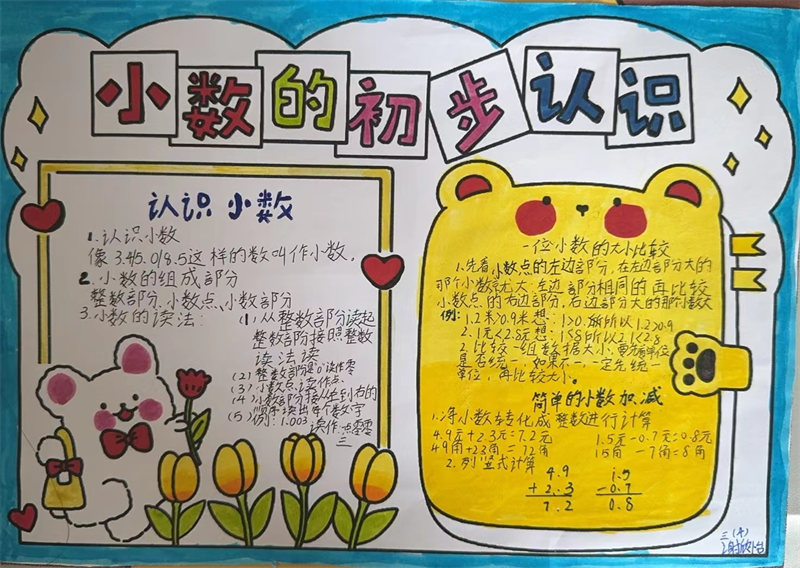 小数的初步认识
认识小数
1.认识小数
像3.45.0/8.5这样的数叫作小数。
2.小数的组成部分
整数部分、小数点、小数部分
3.小数的读法:
(1)从整数部分读起
整数部分按照整数
读法读
(2)整数部分是“0”读作零
(3)小数点读作点.
(4)小数部分按从左到右的
顺序读出每个数字
(5)例:1.003
读作:一点零零
三
一位小数的大小比较
1.先看小数点的左边部分,在左边部分大的
那个小数就大,左边部分相同的再比较
小数点的右边部分,右边部分大的那个小数大
例:1.2米>0.9米想:1>0所以1.2>0.9
2.1元<2.8元想:1<8所以2.1<2.8
2.比较一组数据大小,要先看单位
是否统一,如果不一,定先统一
单位,再比较大小。
简单的小数加、减
1.将小数转化成整数进行计算
4.9元+2.3元=7.2元 1.5元-0.7元=0.8元
49角+23角=72角 15角-7角=8角
2.列竖式计算
4.9 1.5
+2.3 -0.7
7.2 0.8
三(4)